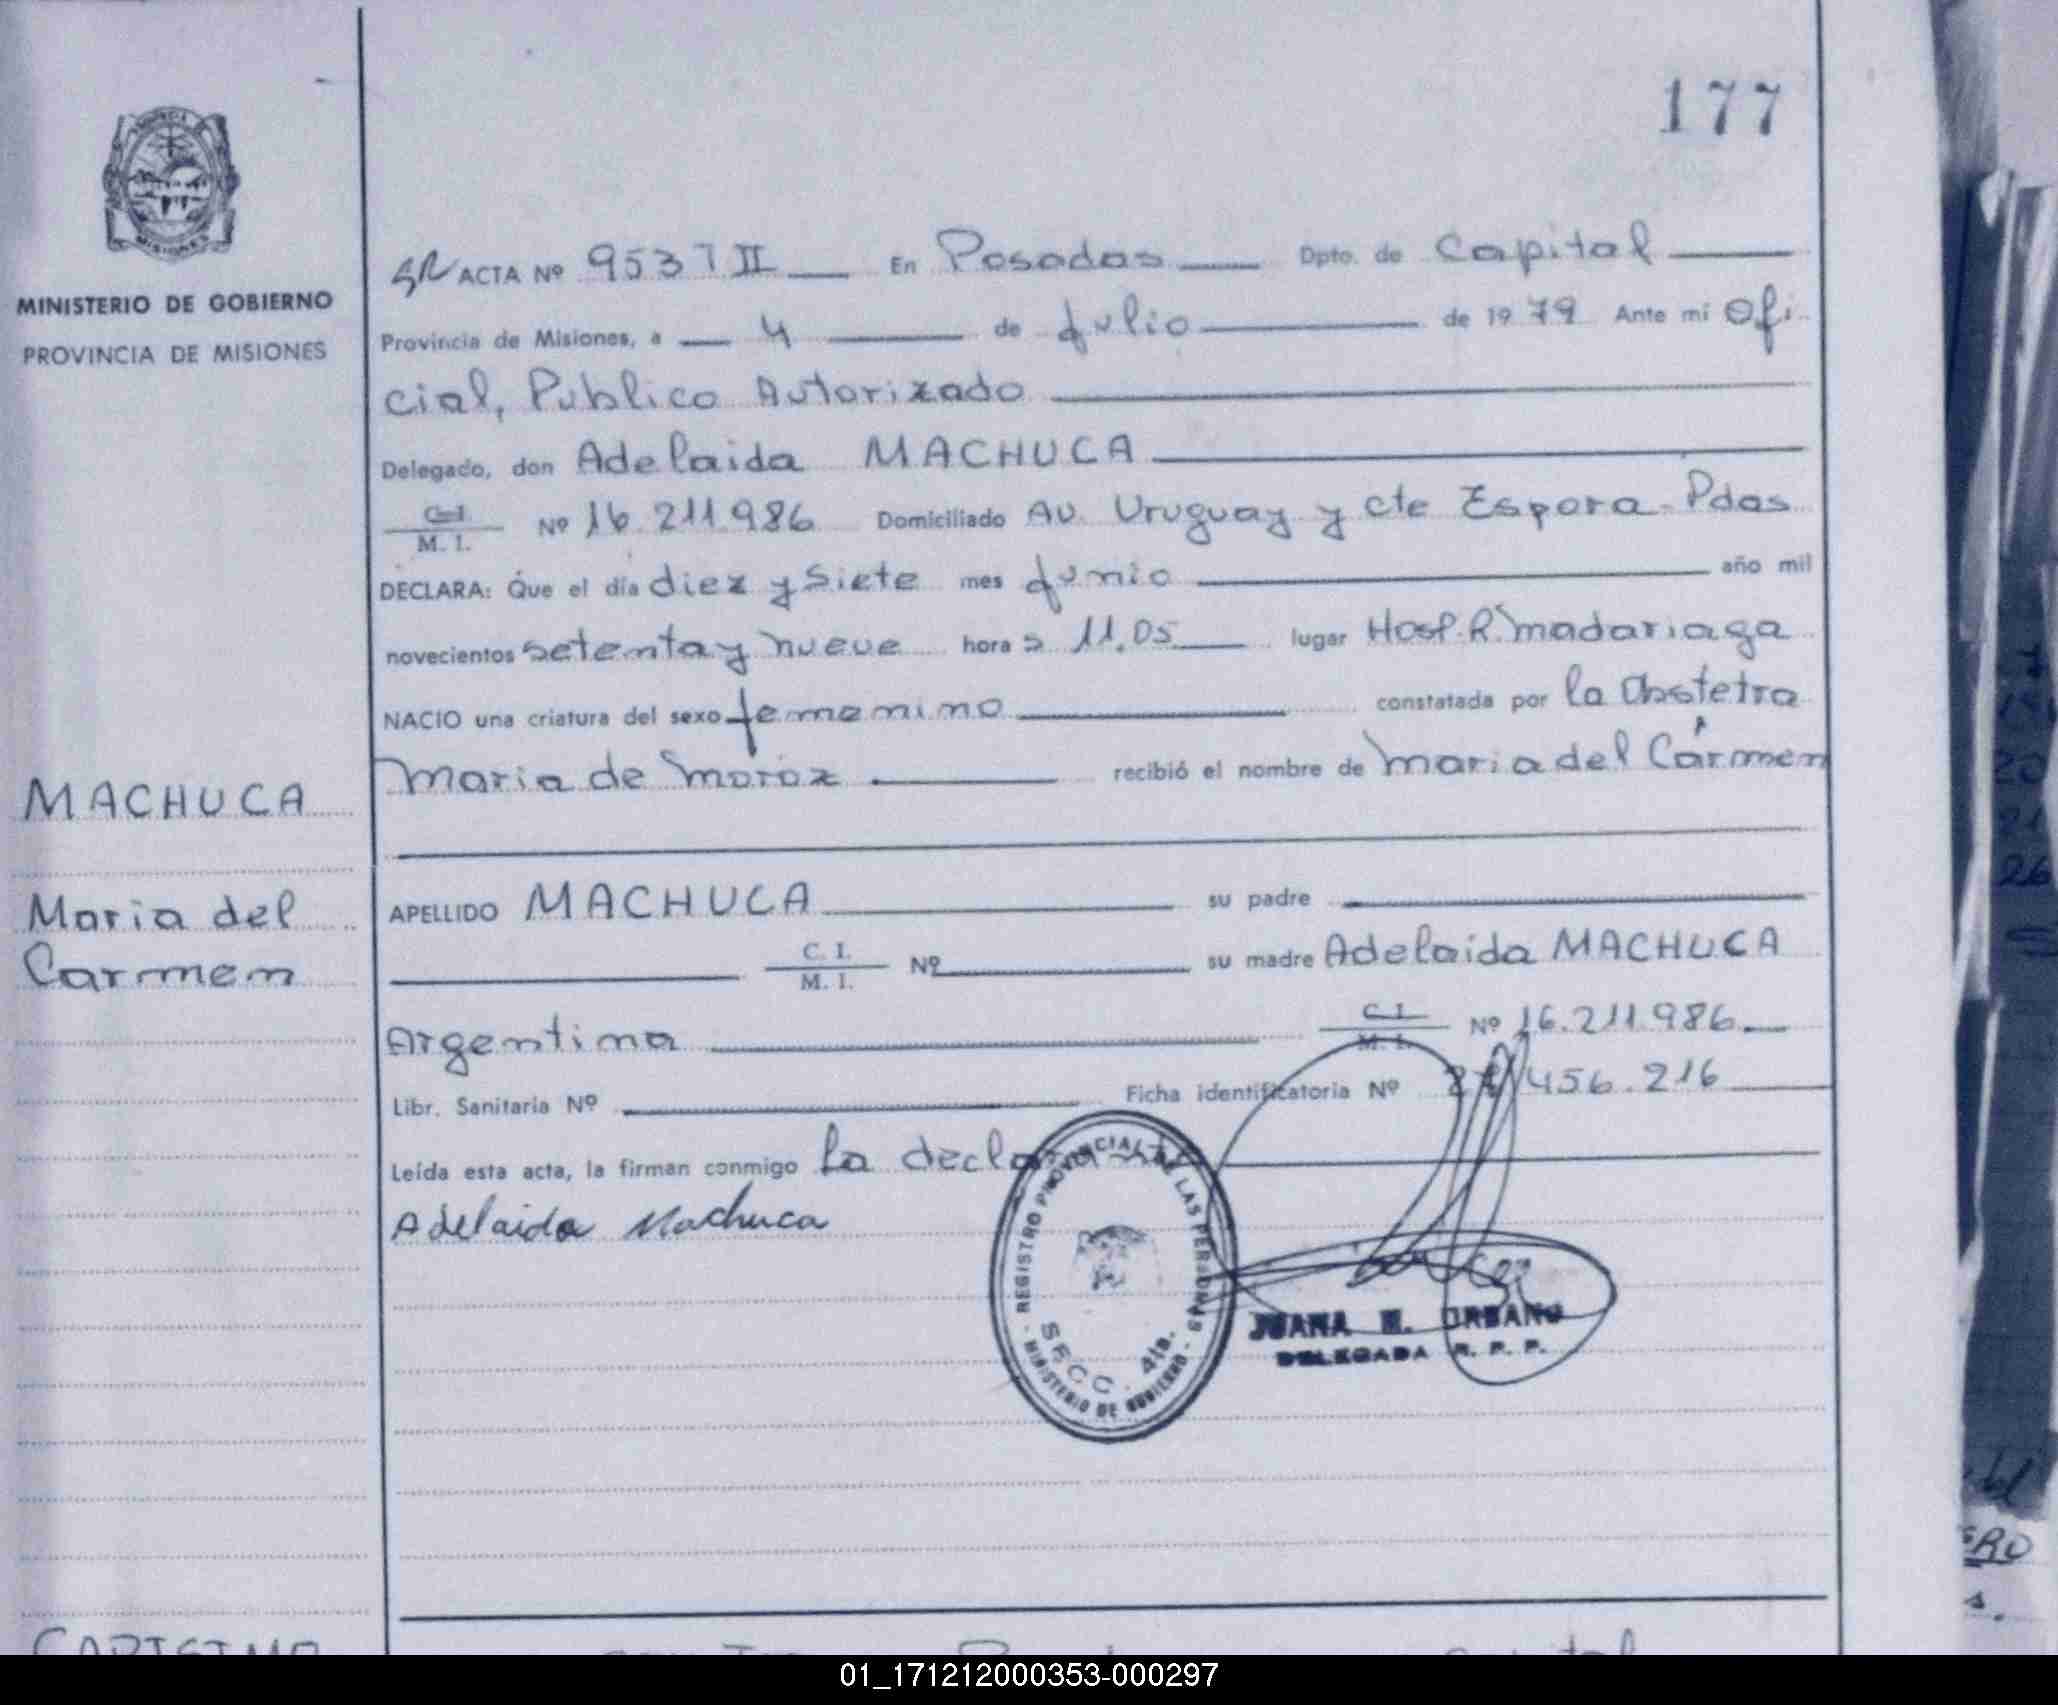 177
MINISTERIO DE GOBIERNO
PROVINCIA DE MISIONES
ACTA Nº 953 T II En Posadas Dpto. de Capital
Provincia de Misiones, a 4 de Julio de 1979 Ante mi Ofi
cial, Publico Autorizado
Delegado, don Adelaida MACHUCA
C.I. M. I. Nº 16.211.986 Domiciliado Av. Uruguay y cte Espora - Pdas
DECLARA: Que el día diez y siete mes Junio año mil
novecientos setenta y nueve hora s 11.05 lugar Hosp. R. Madariaga
NACIO una criatura del sexo femenino constatada por la Obstetra
Maria de Moroz recibió el nombre de Maria del Carmen
MACHUCA
Maria del
Carmen
APELLIDO MACHUCA su padre
C. I. M. I. Nº su madre Adelaida MACHUCA
Argentina C. I. M. I. Nº 16.211.986
Libr. Sanitaria Nº Ficha identificatoria Nº 456.216
Leída esta acta, la firman conmigo La declarante
Adelaida Machuca
REGISTRO PROVINCIAL DE LAS PERSONAS
MINISTERIO DE GOBIERNO
SECC. 4ta.
JUANA H. URBANO
DELEGADA R. P. P.
01_171212000353-000297